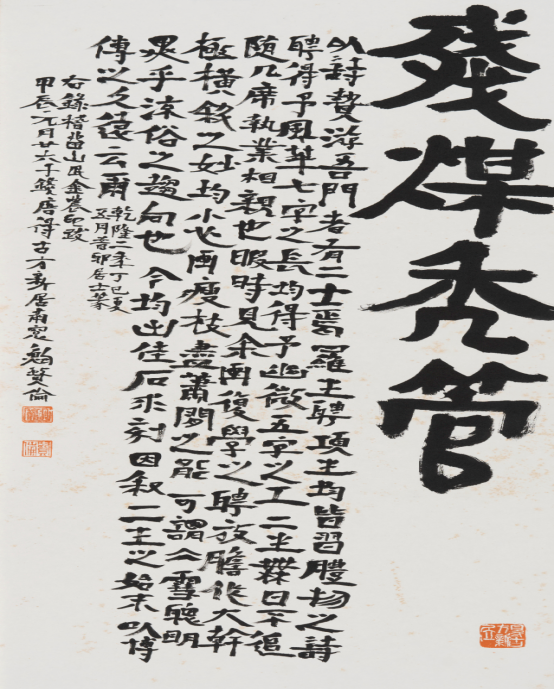 殘煤禿管
以詩贄游吾門者有二士焉羅生聘項生均皆習體物之詩
聘得予風華七字之長均得予幽微五字之工二生無日不追
隨几席執業相親也暇時見余畫復學之聘放膽作大幹
極橫斜之妙均小心畫瘦枝盡蕭閒之能可謂仌雪聰明
異乎流俗之趨向也今均出佳石求刻因敘二生之始末以傳
傳之久遠云爾
乾隆二年丁巳夏
五月昔卯居士篆
右錄稽留山民金農印跋
甲辰元月廿六于錢唐得古方新居南窗